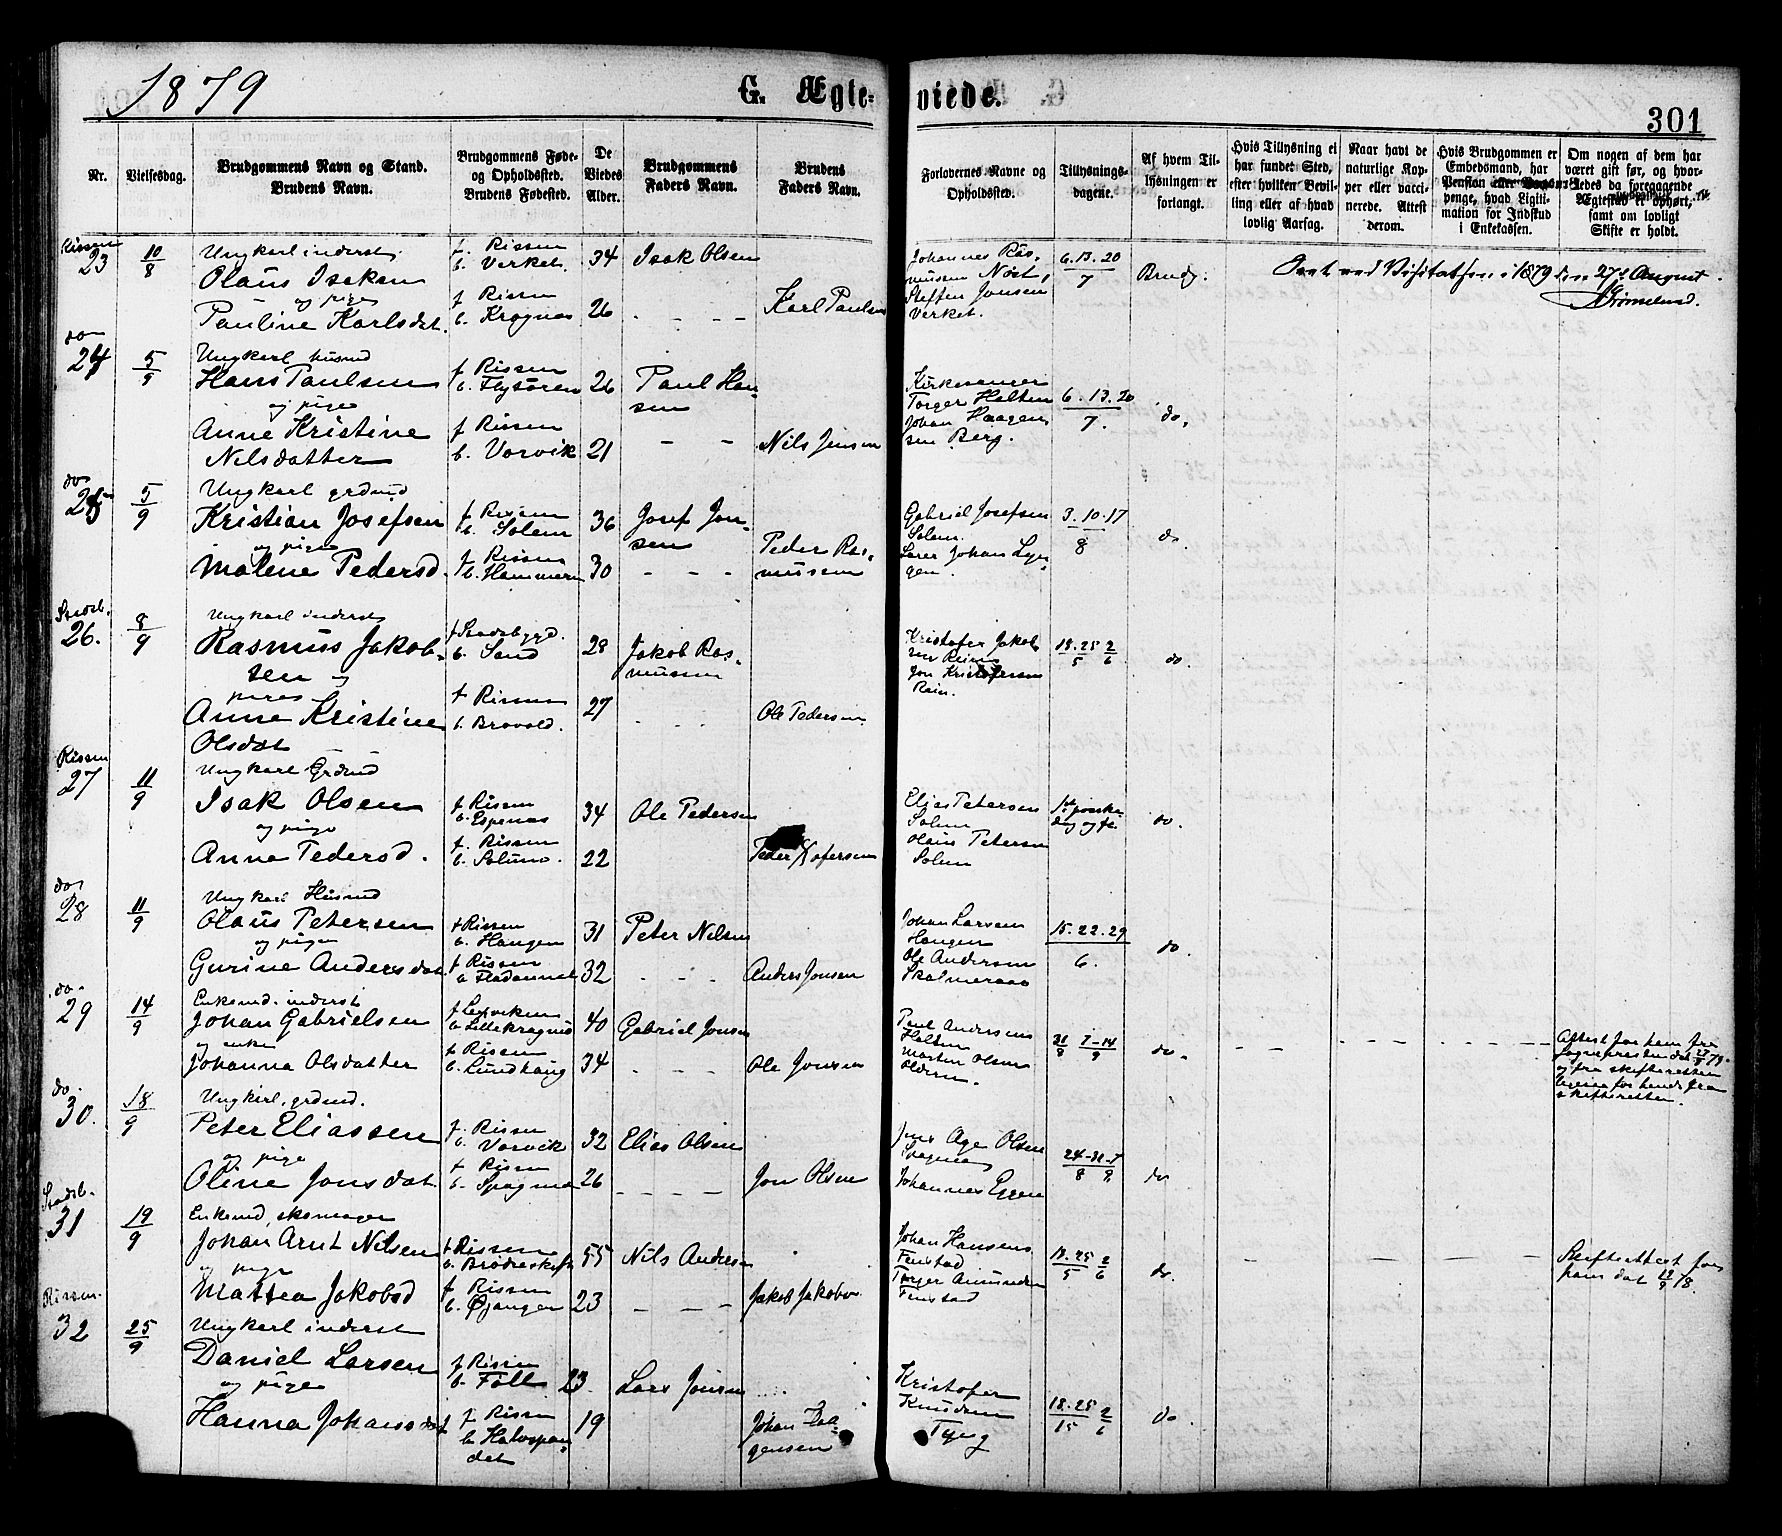 1879
G. Ægte=
viede.
301
Nr.
Vielsesdag.
Brudgommens Navn og Stand.
Brudens Navn.
Brudgommens Føde-
og Opholdssted.
Brudens Fødested.
De
Viedes
Alder.
Brudgommens
Faders Navn.
Brudens
Faders Navn.
Forlovernes Navne og
Opholdssted.
Tillysnings-
dagene.
Af hvem Til-
lysningen er
forlangt.
Hvis Tillysning ei
har fundet Sted,
efter hvilken Bevil-
ling eller af hvad
lovlig Aarsag.
Naar havt de
naturlige Kop-
per eller vacci-
nerede. Attest
derom.
Hvis Brudgommen er
Embedsmand, har
Pension eller
penge, hvad Ligiti-
mation for Indskud
i Enkekassen.
Om nogen af dem har
været gift før, og hvor-
ledes da foregaaende
Ægtestad er ophørt,
samt om lovligt
Skifte er holdt.
Rissen
23
10/8
Ungkarl inderst
Olaus Isaksen
og pige
Pauline Karlsdat.
f. Rissen
b. Verket
f Rissen
b. Kragnæs
34
26
Isak Olsen
Karl Paulsen
Johannes Ras-
mussen Næst
Steffen Jonsen
Verket.
6.13.20
7
Brudg.
ved Visitatsen i 1879 den 27de August.
do
24
5/9
Ungkarl husmd
Hans Paulsen
og pige
Anne Kristine
Nilsdatter
f Rissen
b. Flytøren
f Rissen
b. Vorvik
26
21
Paul Han-
sen
Nils Jensen
Kirkesanger
Torger Halten
Johan Haagen
sen Berg.
6.13.20
7.
do.
do
25
5/9
Ungkarl grdmd
Kristian Josefsen
og pige
Malene Pedersd.
f Rissen
b. Solem
f Rissen
b. Hammern
36
30
Josef Jon-
sen
Peder Ras-
mussen
Gabriel Josefsen
Solem.
Johan
3.10.17
8
do.
Stadsb.
26.
8/9
Ungkarl inderst
Rasmus Jakob-
sen og
pigen
Anne Kristine
Olsdat
f Stadsbygd.
b. Sund
f Rissen
b. Brovold.
28
27
Jakob Ras-
mussen
Ole Pedersen
Kristofer Jakob
sen Rein
Jon Kristofersen
Rein.
18.25 2
5 6
do
Rissen
27
11/9
Ungkarl Grdmd
Isak Olsen
og pige
Anna Pedersd.
f Rissen
b. Espenæs
f. Rissen
b. Solem.
34
22
Ole Pedersen
Peder
Elias Petersen
Solem
Olaus Petersen
Solem
do.
do
28
11/9
Ungkarl Husmd
Olaus Petersen
og pigen
Gurine Andersdat.
f Rissen
b. Haugen
f. Rissen
b
31
32
Peter Nilsen
Anders Jonsen
Johan Larsen
Haugen
Ole Andersen
15.22.29
6.
do
do
29
14/9
Enkemd. inderst
Johan Gabrielsen
og enke
Johanna Olsdatter
f Leksviken
b Lillekragnæs
f Rissen
b. Lundhaug
40
34
Gabriel Jonsen
Ole Jonsen
Paul Andersen
Halten
Morten Olsen
Olderen.
31 7-14
8 9
do.
Attest for ham fra
Sognepresten dat
og fra skifteretten
ligesaa for hende fra
skifteretten.
do
30.
18/9
Ungkarl, grdmd.
Peter Eliassen
og pige
Oline Jonsdat.
f. Rissen
b. Vorvik
f Rissen
b.
32
26
Elias Olsen
Jon Olsen
Jens Age Olsen
Johannes Eggen
24-31-7
8 9
do
Stadsb.
31
19/9
Enkemd, skomager
Johan Arnt Nilsen
og pige
Mattea Jakobsd
f Rissen
b.
f Rissen
b. Øjangen
55
23
Nils Andersen
Jakob Jakobsen
Johan Hansen
Fenstad
Torger Amundsen
Fenstad
18.25 2
5 6
do.
Skifteattest for
ham dat
Rissen.
32
25/9
Ungkarl inderst
Daniel Larsen
og pige
Hanna Johansdat
f Rissen
b. Foll
f Rissen
b.
23.
19
Lars Jonsen
Johan Haa-
gensen
Kristofer
Knudsen
Tyng
18.25 2
15 6
do